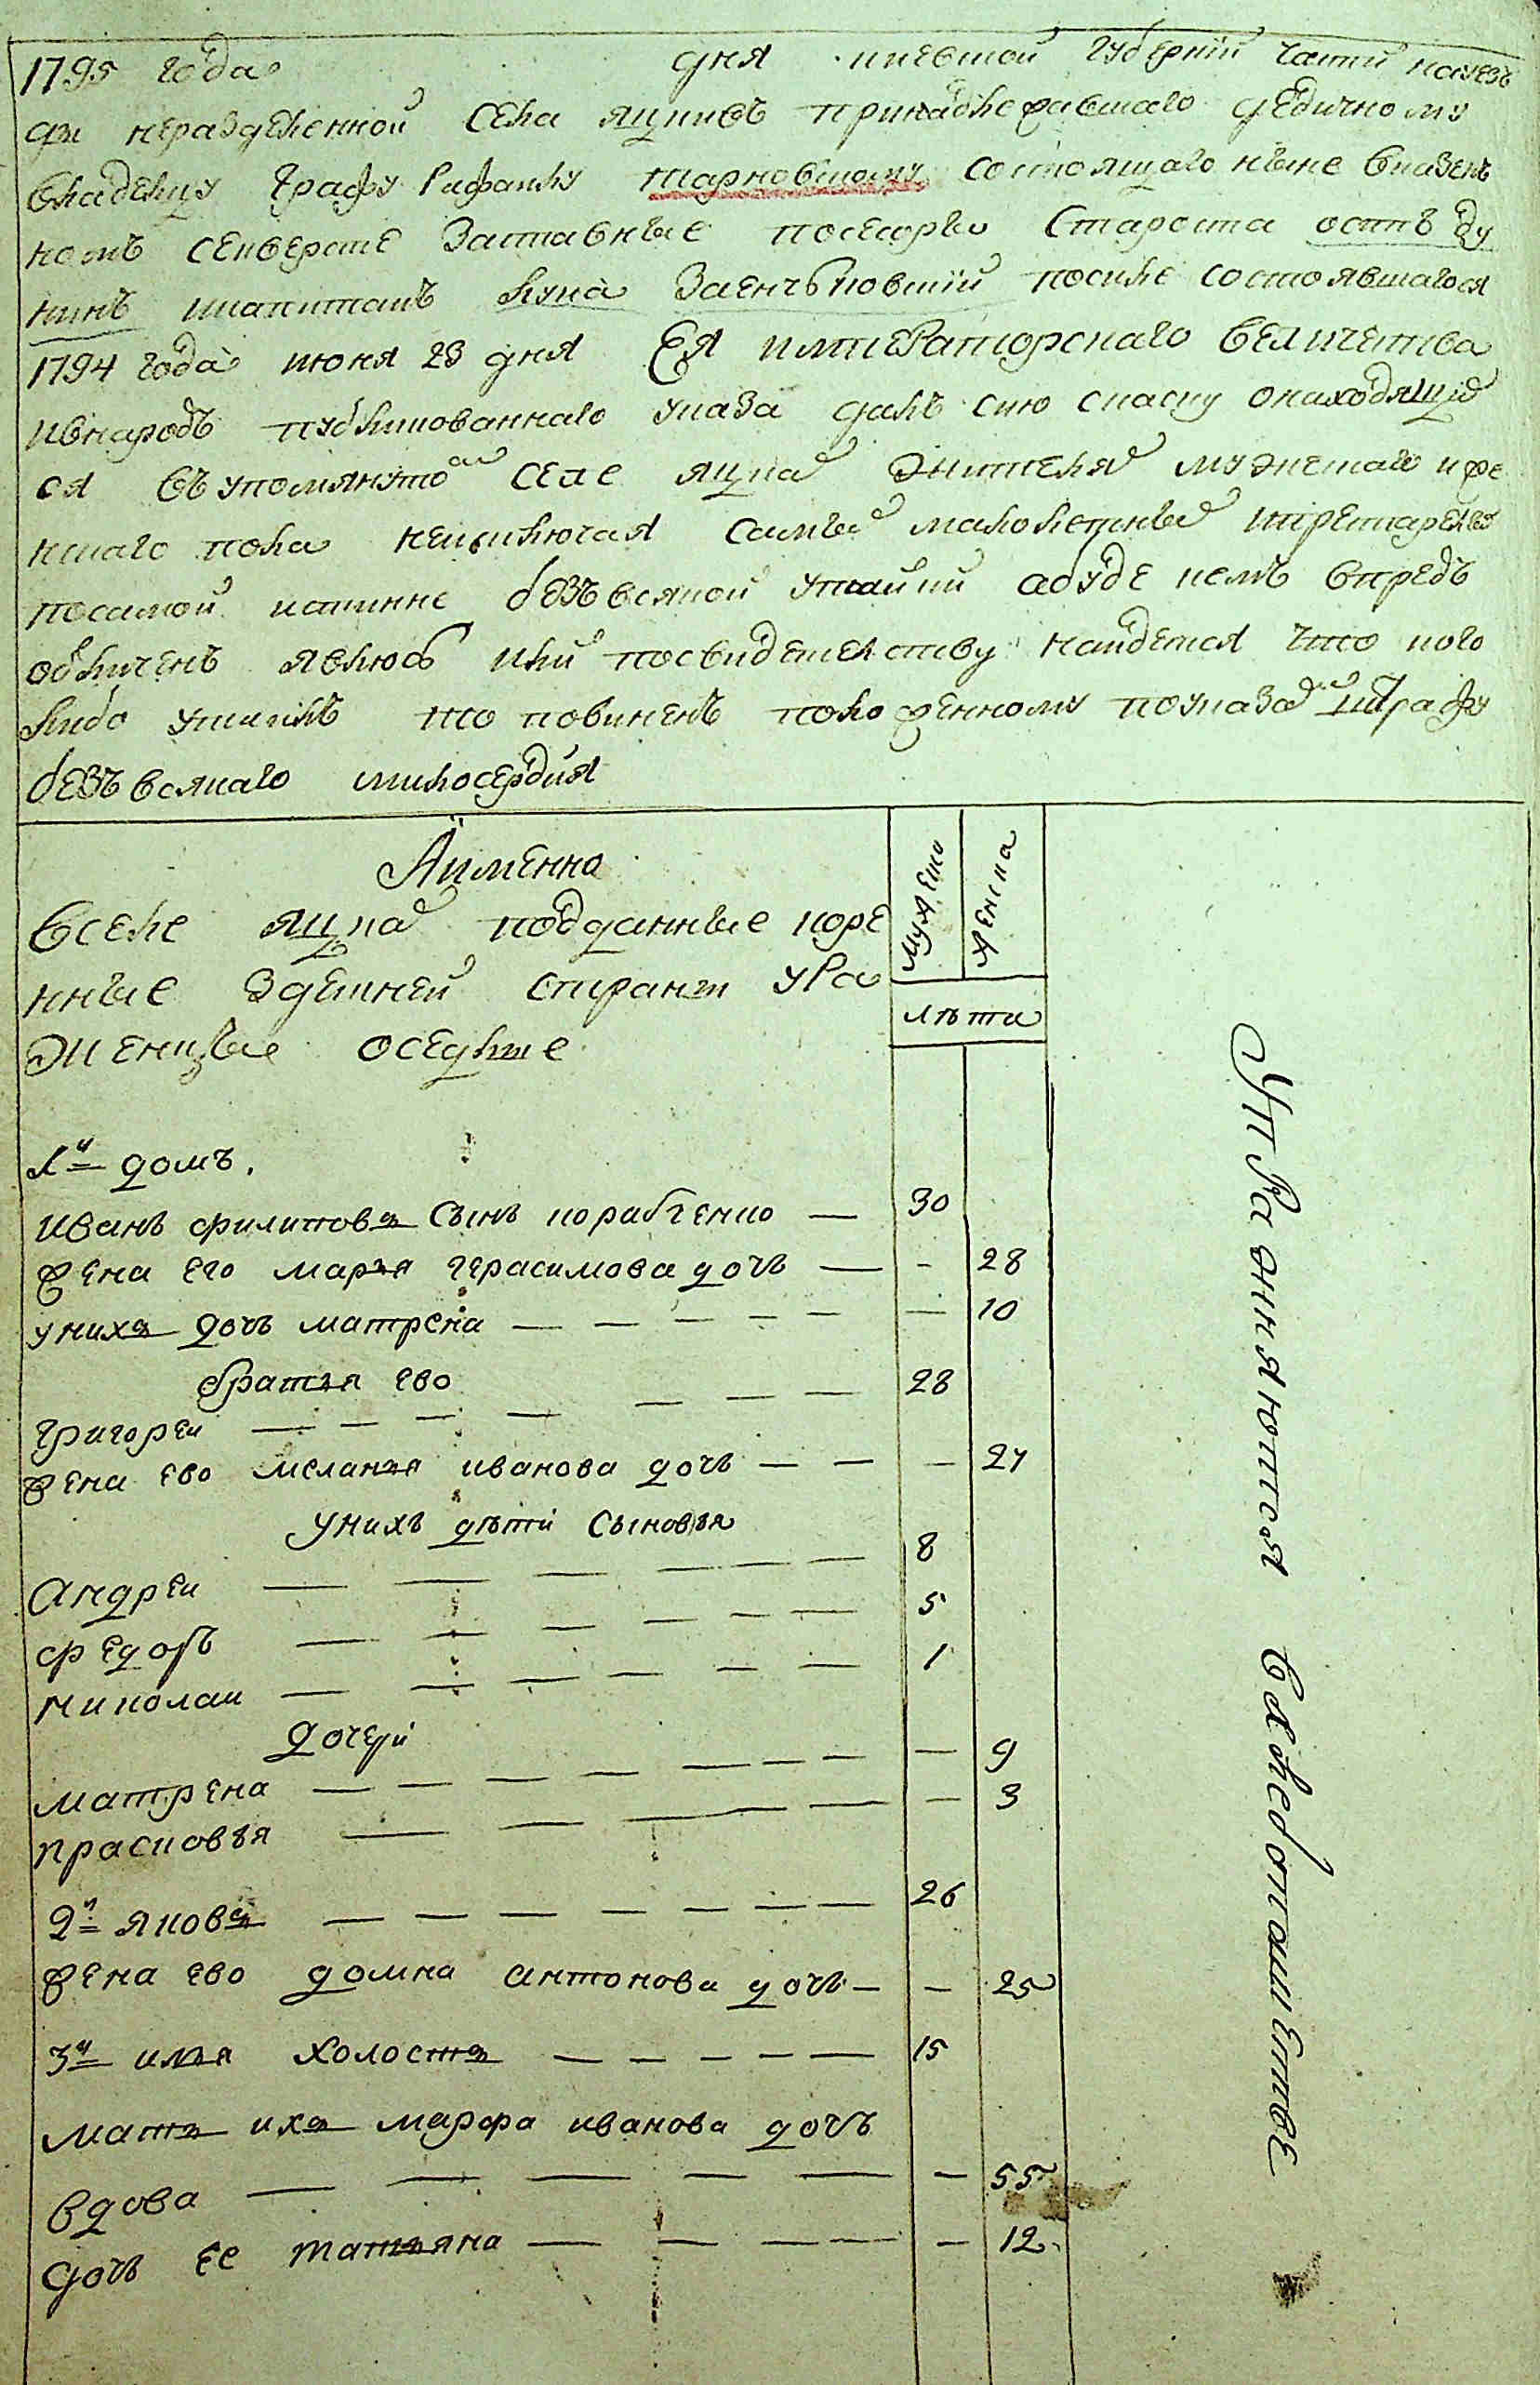 1795 года дня киевской губернiи части науезъ
ды неразделенной села яцкивъ принадлежавшаго дедичному
владелцу графу Рафалку тарновшому состоящаго ныне вказен
номъ сенверсте заставные посесоры Староста остъ ду
нинъ икапитанъ лука заенчъковшiй после состоявшагося
1794 года июня 23 дня Ея императорскаго величества
ивнародъ публикованнаго указа далъ сию скаску онаходящих
ся въ упомянутом селе яцках жителях мужескаго иже
нскаго пола неисключая самых малолетных ипрестарелых
посамой истинне безъ всякой утайки абуде кемъ впредъ
обличенъ явлюсь или посвидетелству найдется что кого
либо утаилъ то повиненъ положенному поуказам штрафу
безъ всякаго милосердия
Аименно
Вселе яцках подданные коре
нные здешней стираны ура
женцы оседлые
мужеско
женска
лѣта
1й домъ.
иванъ филиповъ Сынъ корабленко — 30
жена его марья герасимова дочь — - 28
унихъ дочь матрена — — — — — — 10
братья ево
григореи — — — — — — — 28
жена ево меланья иванова дочь — — — 27
унихъ дѣти сыновья
андреи — — — — — — 8
федоръ — — — — — — 5
николаи — — — — — — 1
дочери
матрена — — — — — — — — 9
прасковья — — — — — — 3
2й яковъ — — — — — — — 26
жена ево домна антонова дочь — — 25
3й илья холостъ — — — — — 15
мать ихъ марфа иванова дочь
вдова — — — — — — 55
дочь ее татьяна — — — — — 12.
Упражняются вхлебопашестве